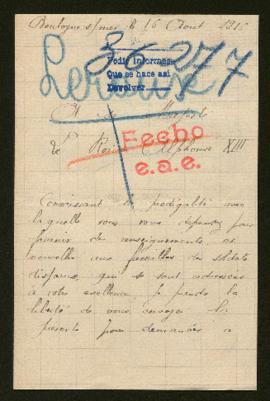 Boulogne s/mer le 16 Aout 1915
3(277
Leroux
Pedir informes
Que se hace así
Devolver
A Majesté
Fecho
e.a.e.
le Roi Alphonse XIII
Connaissant la prodigalité avec
laquelle vous vous dépensez pour
fournir des renseignements et
nouvelles aux familles des soldats
disparus, qui se sont adressées
à votre excellence. Je prends la
liberté de vous envoyer la
présente pour demander a